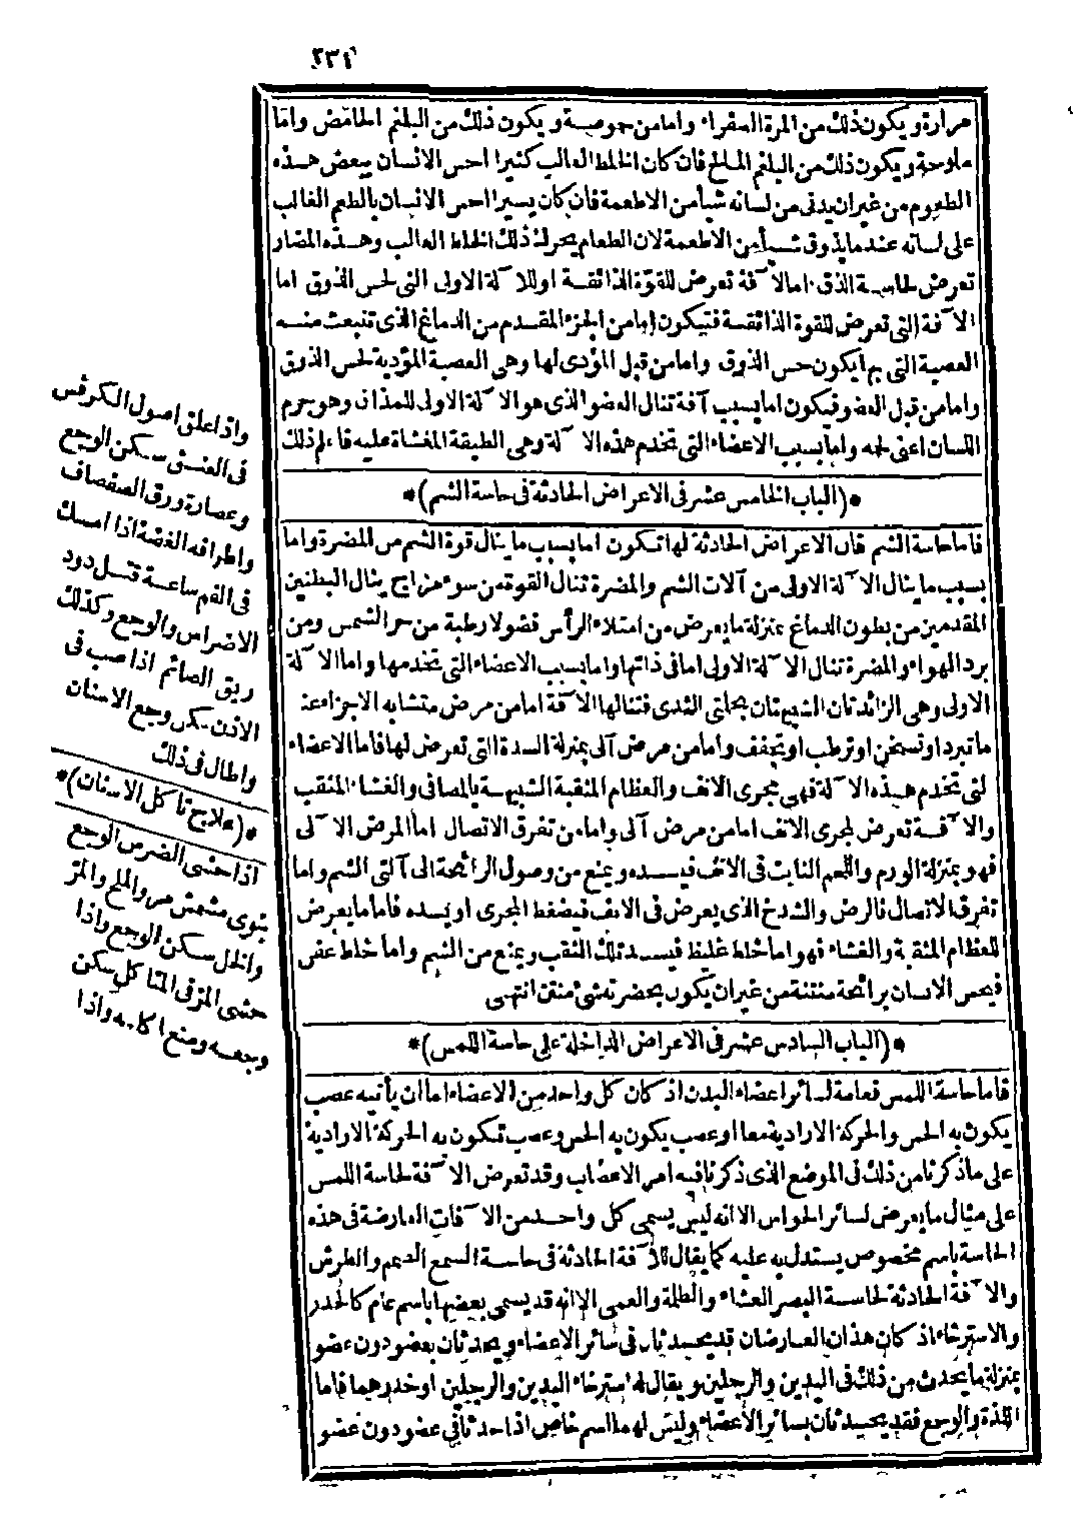 ٢٣١
مرارة ويكون ذلك من المرة الصفراء واما من حموضة ويكون ذلك من البلغم الحامض واما
ملوحة ويكون ذلك من البلغم المالح فان كان الخلط الغالب كثيرا احس الانسان ببعض هذه
الطعوم من غير ان يدنى من لسانه شيأ من الاطعمة فان كان يسيرا احس الانسان بالطعم الغالب
على لسانه عندما يذوق شيأ من الاطعمة لان الطعام يحرك ذلك الخلط الغالب وهذه المضار
تعرض لحاسة الذوق اما لآفة تعرض للقوة الذائقة او للآلة الاولى التى لحس الذوق اما
الآفة التى تعرض للقوة الذائقة فتكون اما من الجزء المقدم من الدماغ الذى تنبعث منه
العصبة التى بها يكون حس الذوق واما من قبل المؤدى لها وهى العصبة المؤدية لحس الذوق
واما من قبل العضو فيكون اما بسبب آفة تنال العضو الذى هو الآلة الاولى للمذاق وهو جرم
اللسان اعنى لحمه واما بسبب الاعضاء التى تخدم هذه الآلة وهى الطبقة المغشاة عليه فاعلم ذلك
*(الباب الخامس عشر فى الاعراض الحادثة فى حاسة الشم)*
فاما حاسة الشم فان الاعراض الحادثة لها تكون اما بسبب ما ينال قوة الشم من المضرة واما
بسبب ما ينال الآلة الاولى من آلات الشم والمضرة تنال القوة من سوء مزاج ينال البطنين
المقدمين من بطون الدماغ بمنزلة ما يعرض من امتلاء الرأس فضولا رطبة من حر الشمس ومن
برد الهواء والمضرة تنال الآلة الاولى اما فى ذاتها واما بسبب الاعضاء التى تخدمها واما الآلة
الاولى وهى الزائدتان الشبيهتان بحلمتى الثدى فتنالها الآفة اما من مرض متشابه الاجزاء عند
ما تبرد او تسخن او ترطب او تجفف واما من مرض آلى بمنزلة السدة التى تعرض لها فاما الاعضاء
لتى تخدم هذه الآلة فهى مجرى الانف والعظام المثقبة الشبيهة بالمصافى والغشاء المثقب
والآفة تعرض لمجرى الانف اما من مرض آلى واما من تفرق الاتصال اما المرض الآلى
فهو بمنزلة الورم واللحم النابت فى الانف فيسده ويمنع من وصول الرائحة الى آلتى الشم واما
تفرق الاتصال فالرض والشدخ الذى يعرض فى الانف فيضغط المجرى او يسده فاما ما يعرض
للعظام المثقبة والغشاء فهو اما خلط غليظ فيسد تلك الثقب ويمنع من الشم واما خلط عفن
فيحس الانسان برائحة منتنة من غير ان يكون بحضرته شئ منتن انتهى
*(الباب السادس عشر فى الاعراض الداخلة على حاسة اللمس)*
فاما حاسة اللمس فعامة لسائر اعضاء البدن اذ كان كل واحد من الاعضاء اما ان يأتيه عصب
يكون به الحس والحركة الارادية معا او عصب يكون به الحس وعصب تكون به الحركة الارادية
على ما ذكرنا من ذلك فى الموضع الذى ذكرنا فيه امر الاعصاب وقد تعرض الآفة لحاسة اللمس
على مثال ما يعرض لسائر الحواس الا انه ليس يسمى كل واحد من الآفات العارضة فى هذه
الحاسة باسم مخصوص يستدل به عليه كما يقال للآفة الحادثة فى حاسة السمع الصمم والطرش
والآفة الحادثة لحاسة البصر العشاء والظلمة والعمى الا انه قد يسمى بعضها باسم عام كالخدر
والاسترخاء اذ كان هذان العارضان قد يحدثان فى سائر الاعضاء ويحدثان بعضو دون عضو
بمنزلة ما يحدث من ذلك فى اليدين والرجلين ويقال له استرخاء اليدين والرجلين او خدرهما فاما
اللذة والوجع فقد يحدثان بسائر الاعضاء وليس لهما اسم خاص اذا حدثا فى عضو دون عضو
واذا علق اصول الكرفس
فى العنق سكن الوجع
وعصارة ورق الصفصاف
واطرافه الغضة اذا امسك
فى الفم ساعة قتل دود
الاضراس والوجع وكذلك
ريق الصائم اذا صب فى
الاذن سكن وجع الاسنان
واطال فى ذلك
*(علاج تآكل الاسنان)*
اذا حشى الضرس الوجع
بنوى مشمش مر والملح والمر
والخل سكن الوجع واذا
حشى المر فى المتآكل سكن
وجعه ومنع اكاله واذا